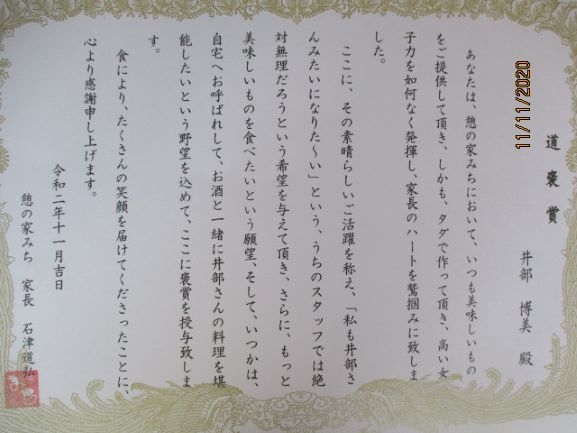 道褒賞
井部 博美 殿
あなたは、憩の家みちにおいて、いつも美味しいもの
をご提供して頂き、しかも、タダで作って頂き、高い女
子力を如何なく発揮し、家長のハートを鷲掴みに致しま
した。
ここに、その素晴らしいご活躍を称え、「私も井部さ
んみたいになりた〜い」という、うちのスタッフでは絶
対無理だろうという希望を与えて頂き、さらに、もっと
美味しいものを食べたいという願望、そして、いつかは、
自宅へお呼ばれして、お酒と一緒に井部さんの料理を堪
能したいという野望を込めて、ここに褒賞を授与致しま
す。
食により、たくさんの笑顔を届けてくださったことに、
心より感謝申し上げます。
令和二年十一月吉日
憩の家みち 家長 石津道弘
11/11/2020